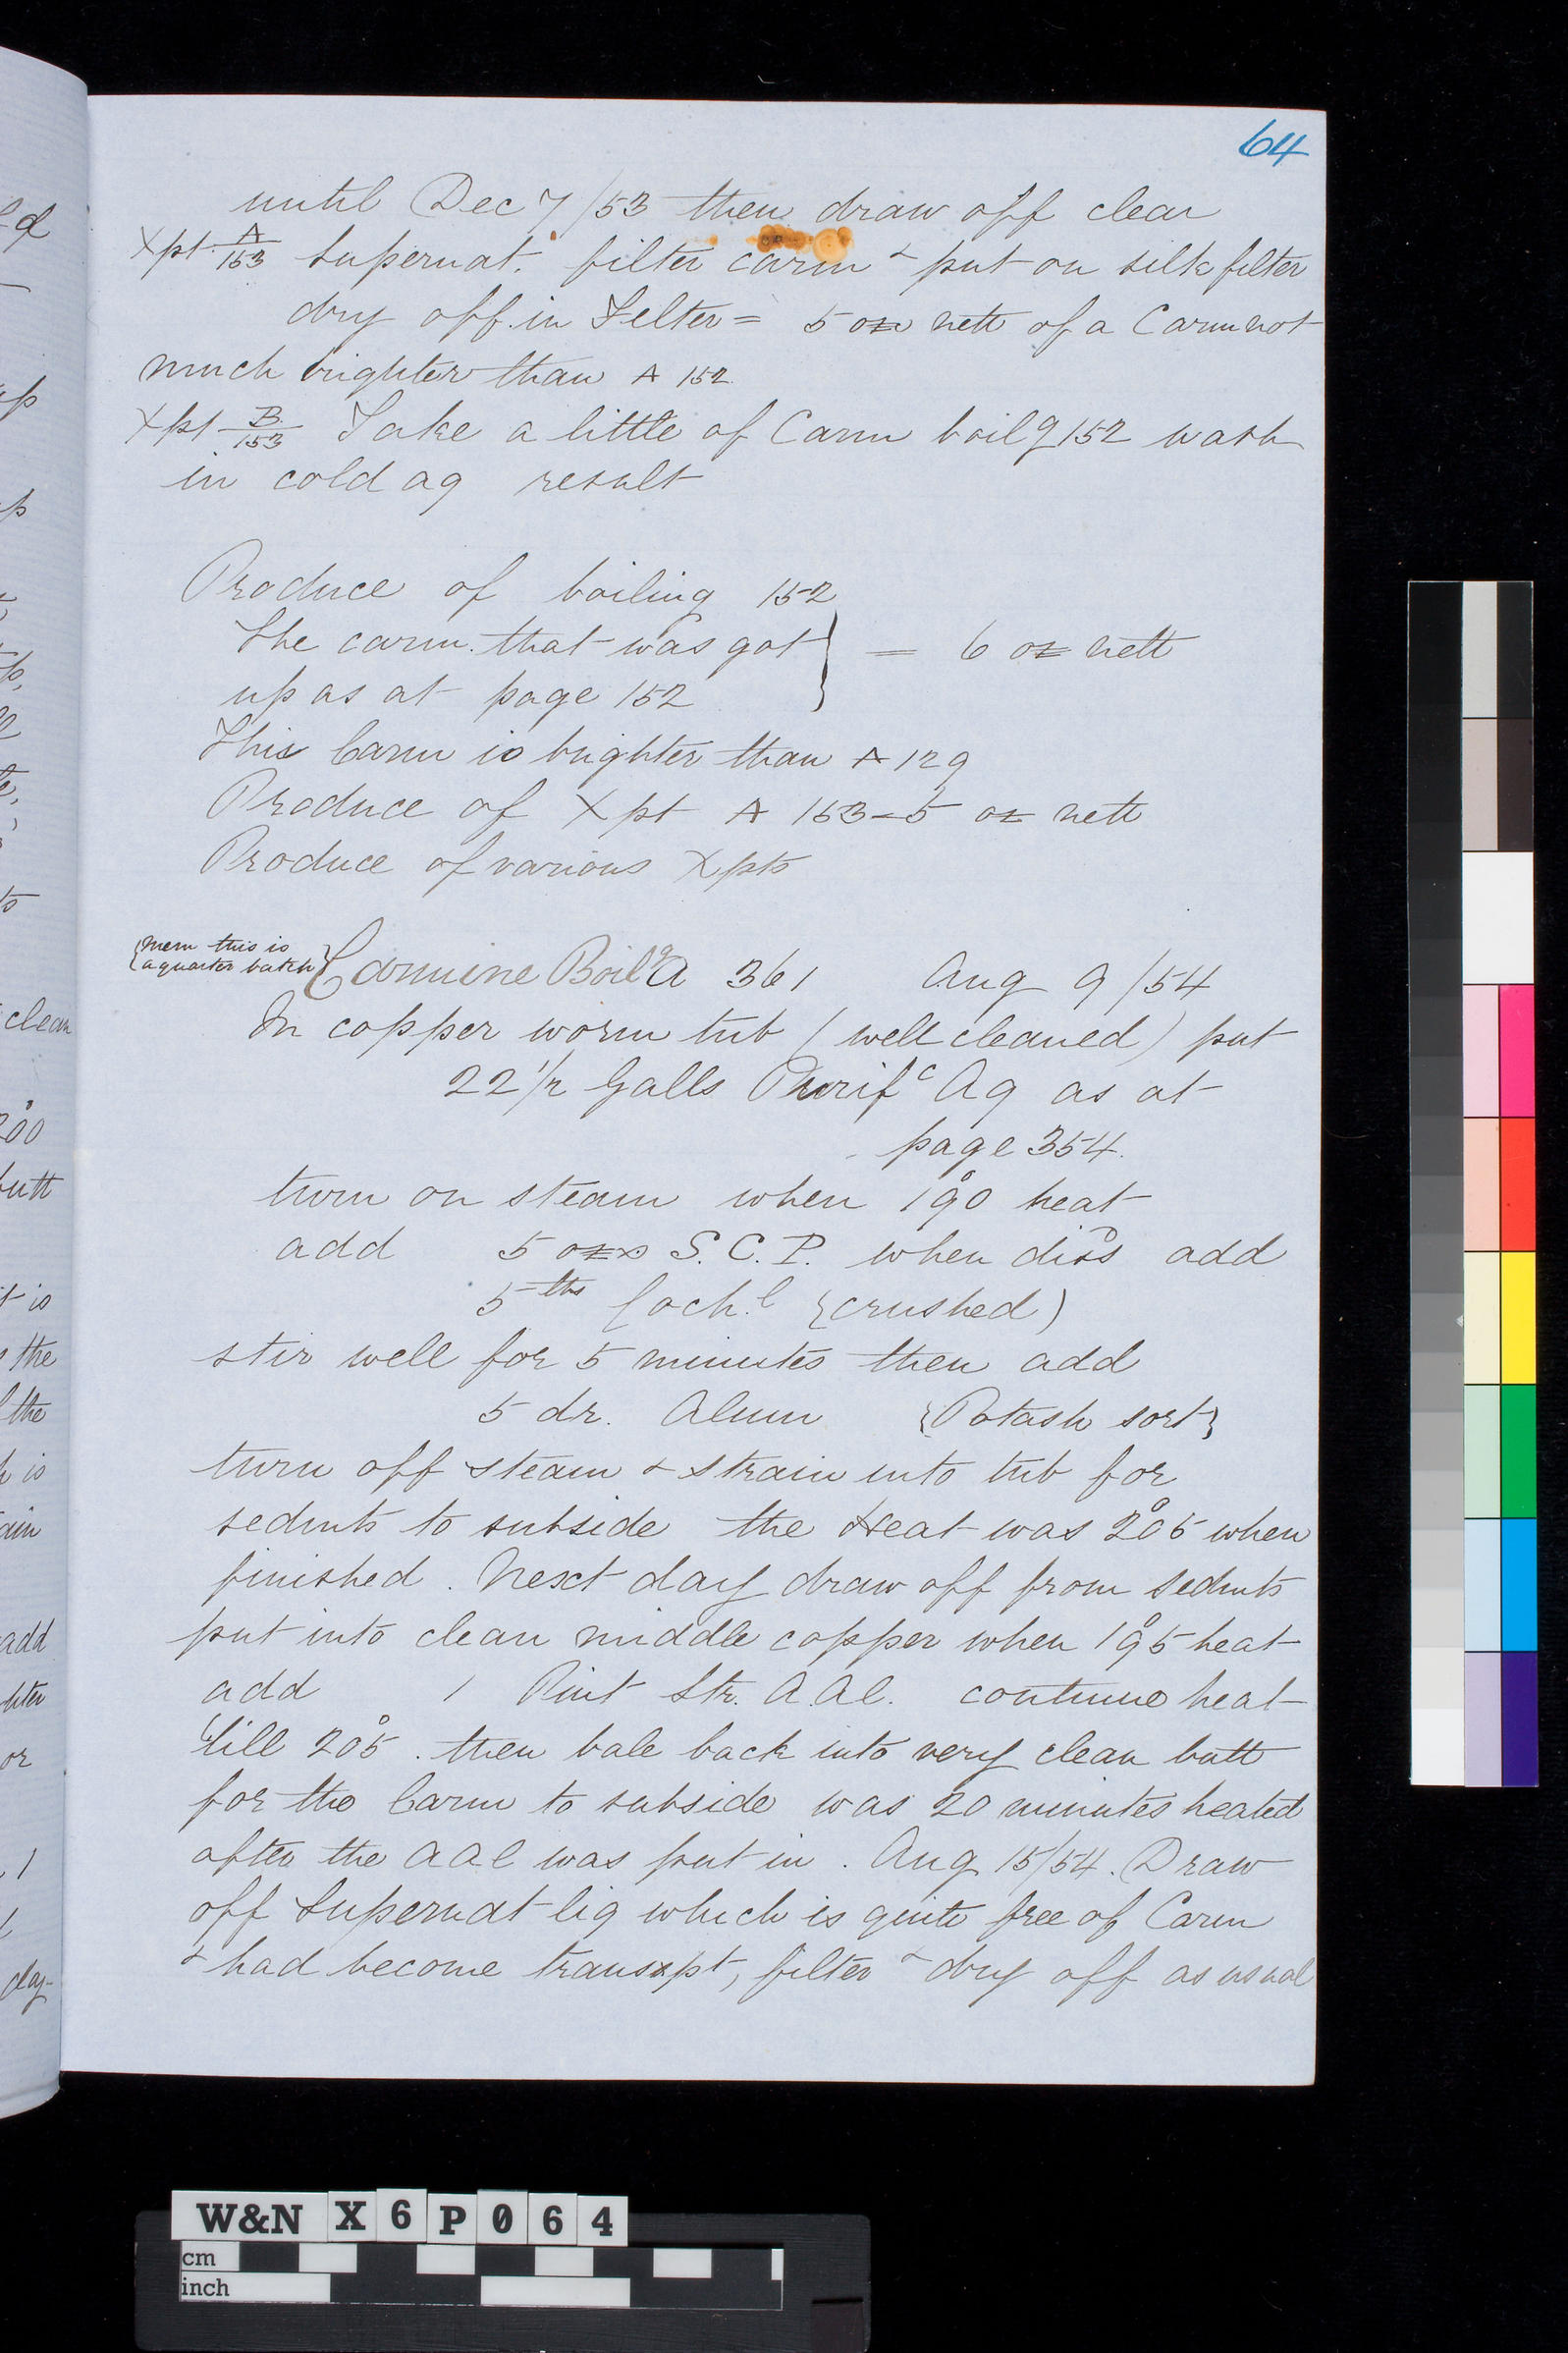 64
until Dec 7/53 then draw off clear
Xpt A/153 supernat. filter carm & put on silk filter
dry off in Filter = 5 oz nett of a Carm not
much brighter than A 152
Xpt B/153 Take a little of Carm boilg 152 wash
in cold aq result
Produce of boiling 152
The carm. that was got
up as at page 152 } = 6 oz nett
This Carm is brighter than A 129
Produce of Xpt A 153 = 5 oz nett
Produce of various Xpts
{Mem this is
a quarter batch} Carmine Boilg A 361 Aug 9/54
In copper worm tub (well cleaned) put
22 1/2 Galls Purifc Aq as at
page 354.
turn on steam when 190° heat
add 5 ozs S.C.P. when dissd add
5 lbs Coch.l {crushed)
stir well for 5 minutes then add
5 dr. Alum {Potash sort}
turn off steam & strain into tub for
sedmts to subside the Heat was 205° when
finished. Next day draw off from sedmts
put into clean middle copper when 195° heat
add 1 Pint Str. A.Al. continue heat
till 205°. then bale back into very clean butt
for the Carm to subside was 20 minutes heated
after the AAl was put in. Aug 15/54. Draw
off Supernat liq which is quite free of Carm
& had become transpt, filter & dry off as usual
clean
200°
butt
it is
the
the
is
add
or
1
day
W&N X6P064
cm
inch